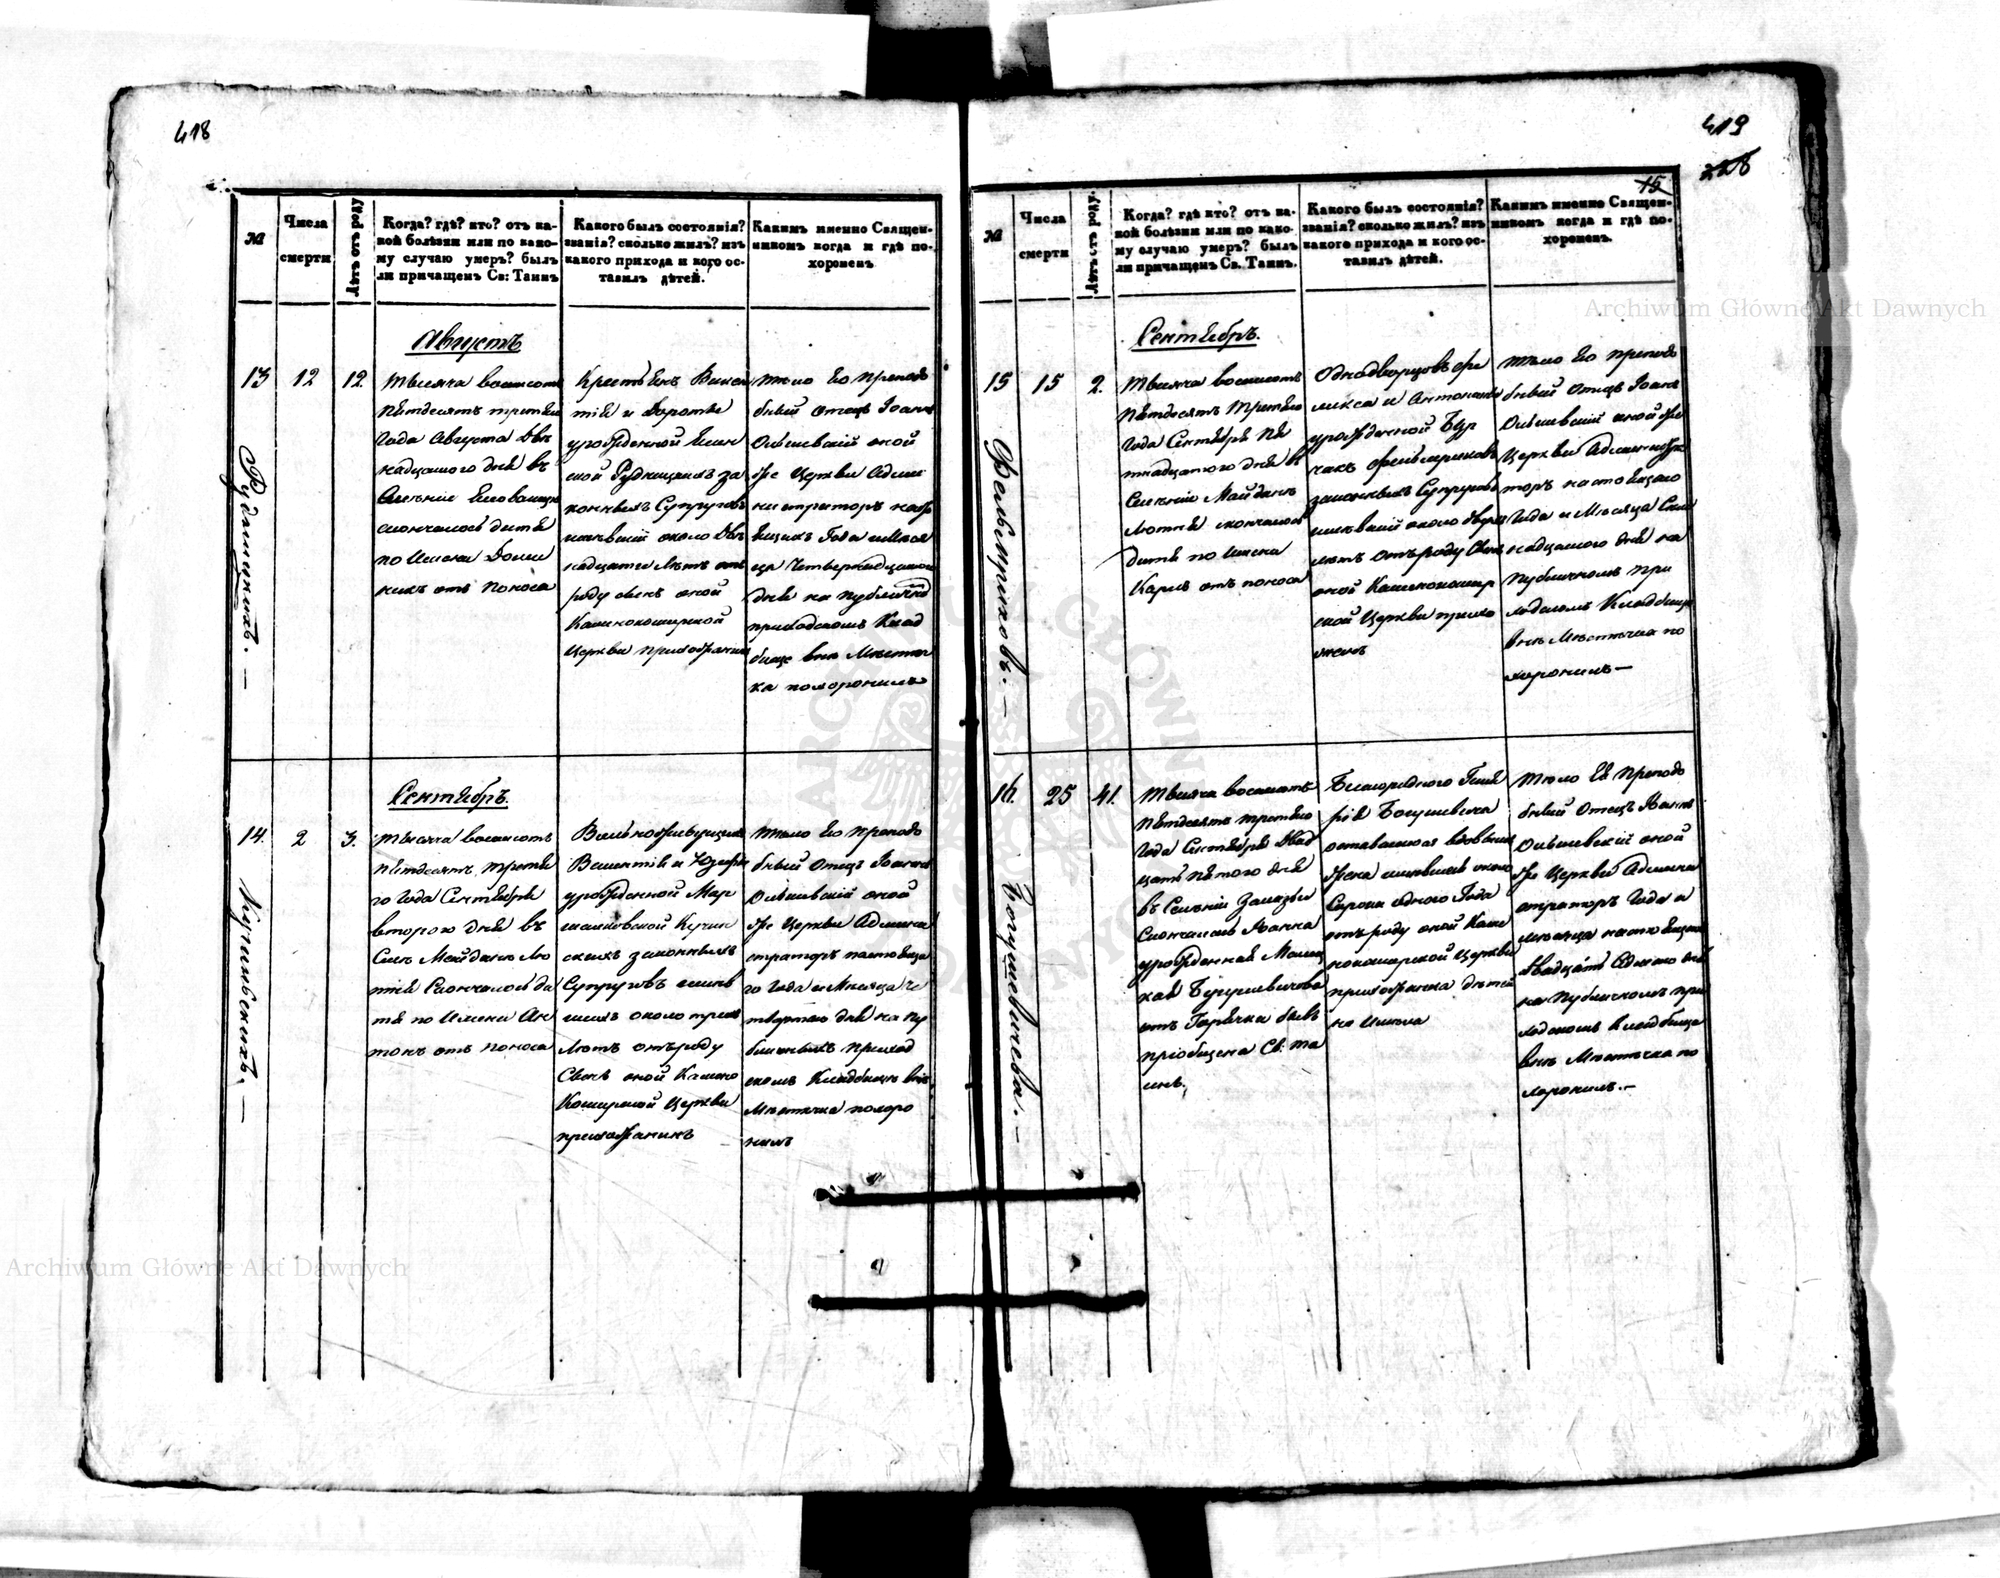 418
№
Числа
смерти
Лѣтъ отъ роду
Когда? гдѣ? кто? отъ ка-
кой болѣзни или по како-
му случаю умеръ? былъ
ли причащенъ Св: Таинъ
Какого былъ состоянія?
званія? сколько жилъ? изъ
какого прихода и кого ос-
тавилъ дѣтей.
Какимъ именно Священ-
никомъ когда и гдѣ по-
хороненъ
Августъ
13
12
12
Рудницкихъ. —
Тысяча восемсотъ
пятдесятъ третьяго
года Августа двѣ
надцатого дня въ
скончалось дитя
по имени Доми
никъ отъ поноса
Крестьянъ Викен
тія и Доротеи
урожденной
Рудницкихъ за
конныхъ Супруговъ
имѣвшій около двѣ
надцати лѣтъ отъ
роду сынъ оной
Каминокоширской
Церкви прихожанинъ
тѣло Его преподо
бный Отецъ Іоаннъ
оной
же Церкви Адми
нистраторъ
Года и Мѣся
ца Четвернадцатого
дня на публичном
приходскомъ Клад
бище внѣ Мѣстеч
ка похоронилъ
Сентябрь
14.
2
3.
Тысяча восемсотъ
пятдесятъ третья
го Года Сентября
второго дня въ
Селѣ Майданѣ Лю
тнѣ Скончалось ди
тя по Имени Ан
тонъ отъ поноса
Вольножбующихъ
Викентія и Юзефы
урожденной Мар
шалковской Кучин
скихъ законныхъ
Супруговъ имѣв
шихъ около трехъ
лѣтъ отъ роду
Сынъ оной Камино
Коширской Церкви
прихожанинъ
тѣло Его преподо
бный Отецъ Іоаннъ
оной
же Церкви Админи
страторъ настояща
го Года и Мѣсяца че
твертаго дня на пу
бличныхъ приход
скомъ Кладбищѣ внѣ
Мѣстечка похоро
нилъ
419
228
15
№
Числа
смерти
Лѣтъ отъ роду.
Когда? гдѣ кто? отъ ка-
кой болѣзни или по како-
му случаю умеръ? былъ
ли причащенъ Св. Таинъ.
Какого былъ состоянія?
званія? сколько жилъ? изъ
какого прихода и кого ос-
тавилъ дѣтей.
Какимъ именно Священ-
никомъ когда и гдѣ по-
хороненъ.
Сентябрь.
15
15
2.
Тысяча восемсотъ
пятдесятъ третьяго
года Сентября пя
тнадцатого дня въ
Селеніи Майданѣ
Лютнѣ скончалось
дитя по имени
Карлъ отъ поноса
Однодворцовъ Фе
ликса и Антонины
урожденной
законныхъ Супруговъ
имѣвшій около двухъ
лѣтъ отъ роду Сынъ
оной Каминокошир
ской Церкви прихо
жанъ
тѣло Его преподо
бный Отецъ Іоаннъ
оной же
Церкви Администра
торъ настоящаго
Года и Мѣсяца
надцатого дня на
публичномъ при
ходскомъ Кладбище
внѣ Мѣстечка по
хоронилъ —
16.
25
41.
Богушевичева. —
Тысяча восемсотъ
пятдесятъ третьяго
года Сентября двад
цать пятого дня
въ Селеніи
Скончалась Анна
урожденная
Богушевичова
отъ Горячки бывъ
пріобщена Св: та
инъ.
Благороднаго
Богушевича
оставшаяся вдовою
Жена имѣвшая около
Сорокъ одного Года
отъ роду оной Ками
нокоширской Церкви
прихожанка дѣтей
не имѣла
тѣло Ея преподо
бный Отецъ Іоаннъ
оной
же Церкви Админи
страторъ Года и
мѣсяца настоящихъ
двадцать дня
на публичномъ при
ходскомъ Кладбище
внѣ Мѣстечка по
хоронилъ. —
Archiwum Główne Akt Dawnych
Archiwum Główne Akt Dawnych